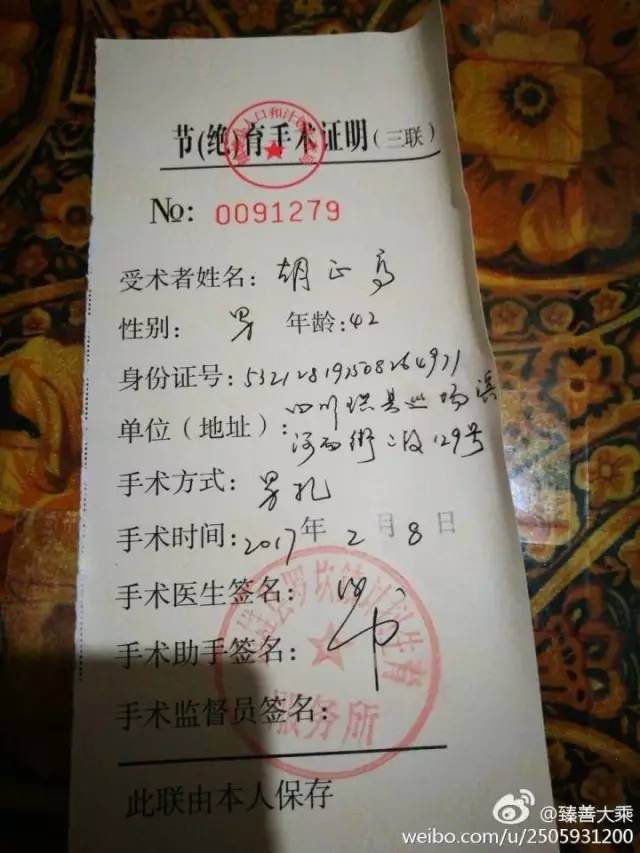 节(绝)育手术证明(三联)
No: 0091279
受术者姓名: 胡正高
性别: 男 年龄: 42
身份证号: 532128197508264971
单位(地址): 四川珙县巡场滨
河西街二段129号
手术方式: 男扎
手术时间: 2017年2月8日
手术医生签名:
手术助手签名:
手术监督员签名:
罗坎镇计划生育
服务所
此联由本人保存
@臻善大乘
weibo.com/u/2505931200